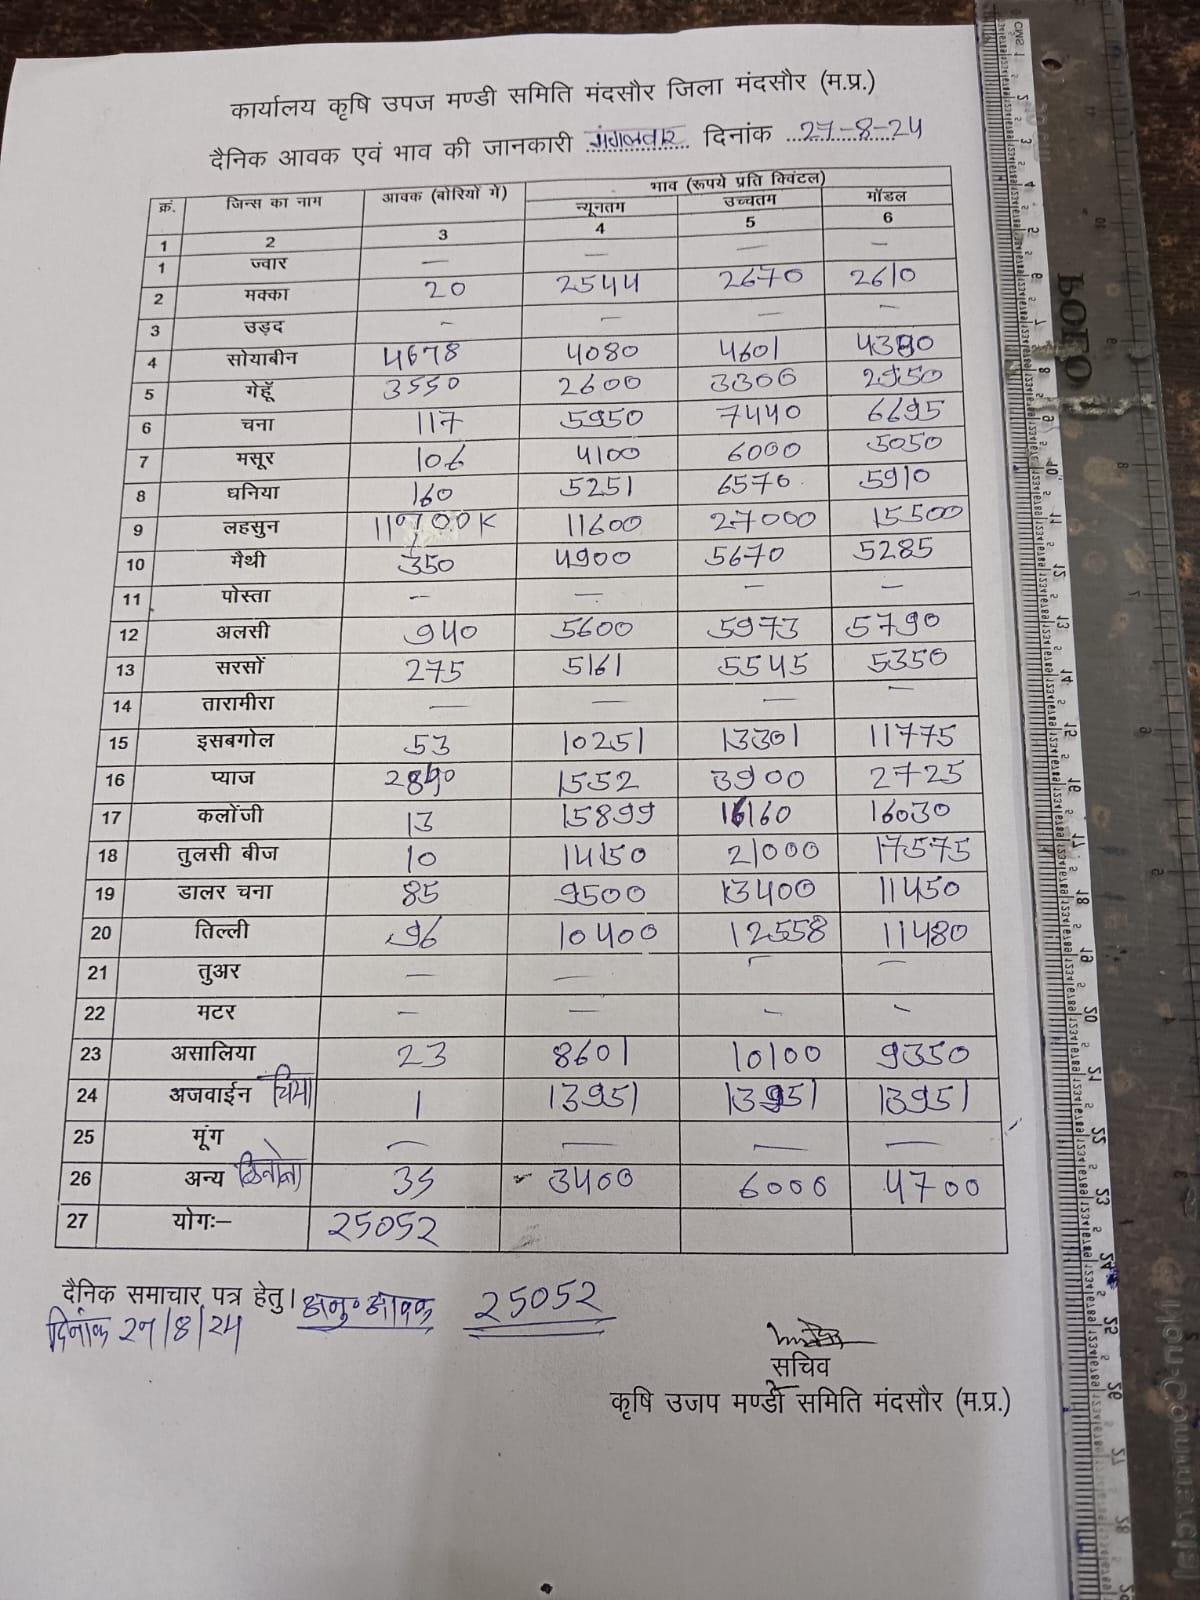 कार्यालय कृषि उपज मण्डी समिति मंदसौर जिला मंदसौर (म.प्र.)
दैनिक आवक एवं भाव की जानकारी मंगलवार दिनांक 27-8-24
क्रं. जिन्स का नाम आवक (बोरियों में) भाव (रूपये प्रति क्विंटल)
न्यूनतम उच्चतम मॉडल
1 2 3 4 5 6
1 ज्वार — — — —
2 मक्का 20 2544 2670 2610
3 उड़द - — — -
4 सोयाबीन 4678 4080 4601 4390
5 गेहूँ 3550 2600 3300 2950
6 चना 117 5950 7440 6695
7 मसूर 106 4100 6000 5050
8 धनिया 160 5251 6576 5910
9 लहसुन 11600 27000 15500
10 मैथी 350 4900 5670 5285
11 पोस्ता -- — — —
12 अलसी 940 5600 5973 5790
13 सरसों 275 5161 5545 5350
14 तारामीरा — — — —
15 इसबगोल 53 10251 13301 11775
16 प्याज 2890 1552 3900 2725
17 कलोंजी 13 15899 16160 16030
18 तुलसी बीज 10 14150 21000 17575
19 डालर चना 85 9500 13400 11450
20 तिल्ली 96 10400 12558 11480
21 तुअर — — — —
22 मटर — — - -
23 असालिया 23 8601 10100 9350
24 अजवाईन चिया 1 13951 13951 13951
25 मूंग — — — —
26 अन्य 35 3400 6000 4700
27 योगः— 25052
दैनिक समाचार पत्र हेतु। अनु॰ आवक 25052
दिनांक 27/8/24
सचिव
कृषि उजप मण्डी समिति मंदसौर (म.प्र.)